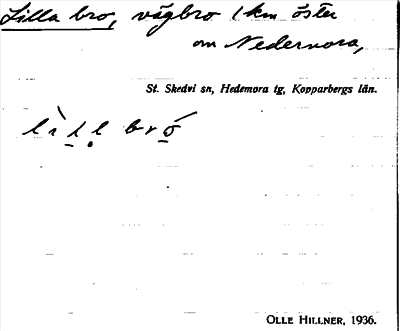 Lilla bro, vägbro 1 km öster
om Nedernora,
St. Skedvi sn, Hedemora tg, Kopparbergs län.
OLLE HILLNER, 1936.